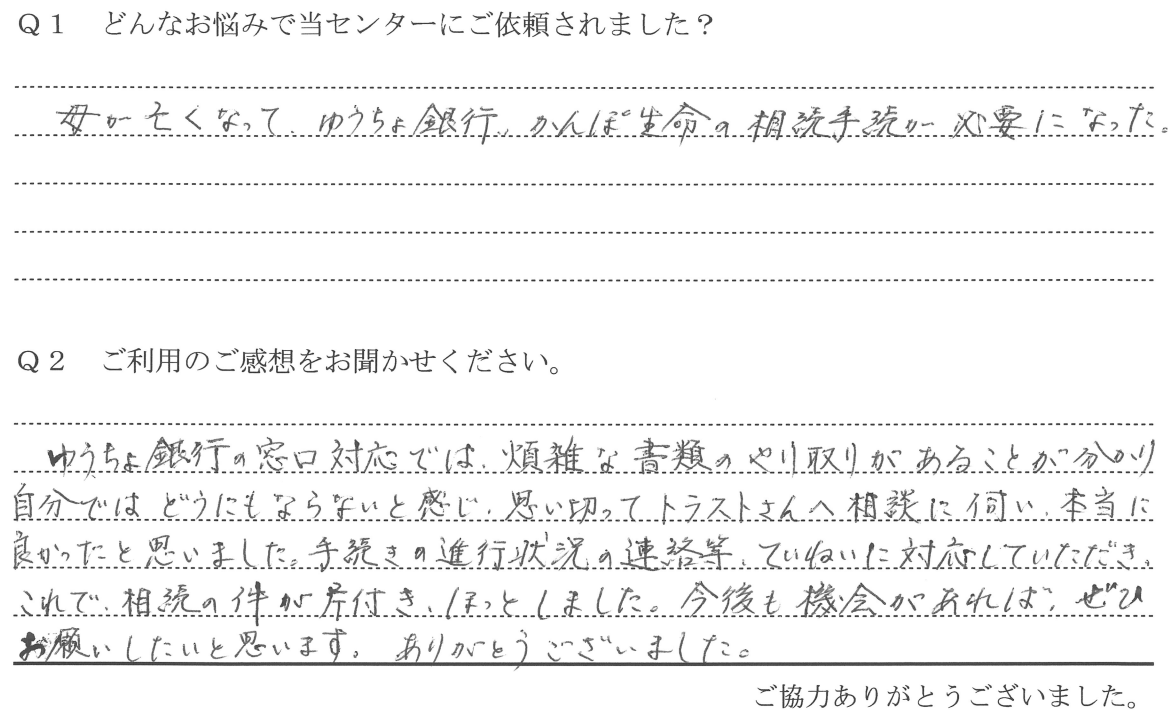 Q1 どんなお悩みで当センターにご依頼されました?
母が亡くなって、ゆうちょ銀行、かんぽ生命の相続手続が必要になった。
Q2 ご利用のご感想をお聞かせください。
ゆうちょ銀行の窓口対応では、煩雑な書類のやり取りがあることが分かり
自分ではどうにもならないと感じ、思い切ってトラストさんへ相談に伺い、本当に
良かったと思いました。手続きの進行状況の連絡等、ていねいに対応していただき、
これで、相続の件が片付き、ほっとしました。今後も機会があれば、ぜひ
お願いしたいと思います。ありがとうございました。
ご協力ありがとうございました。